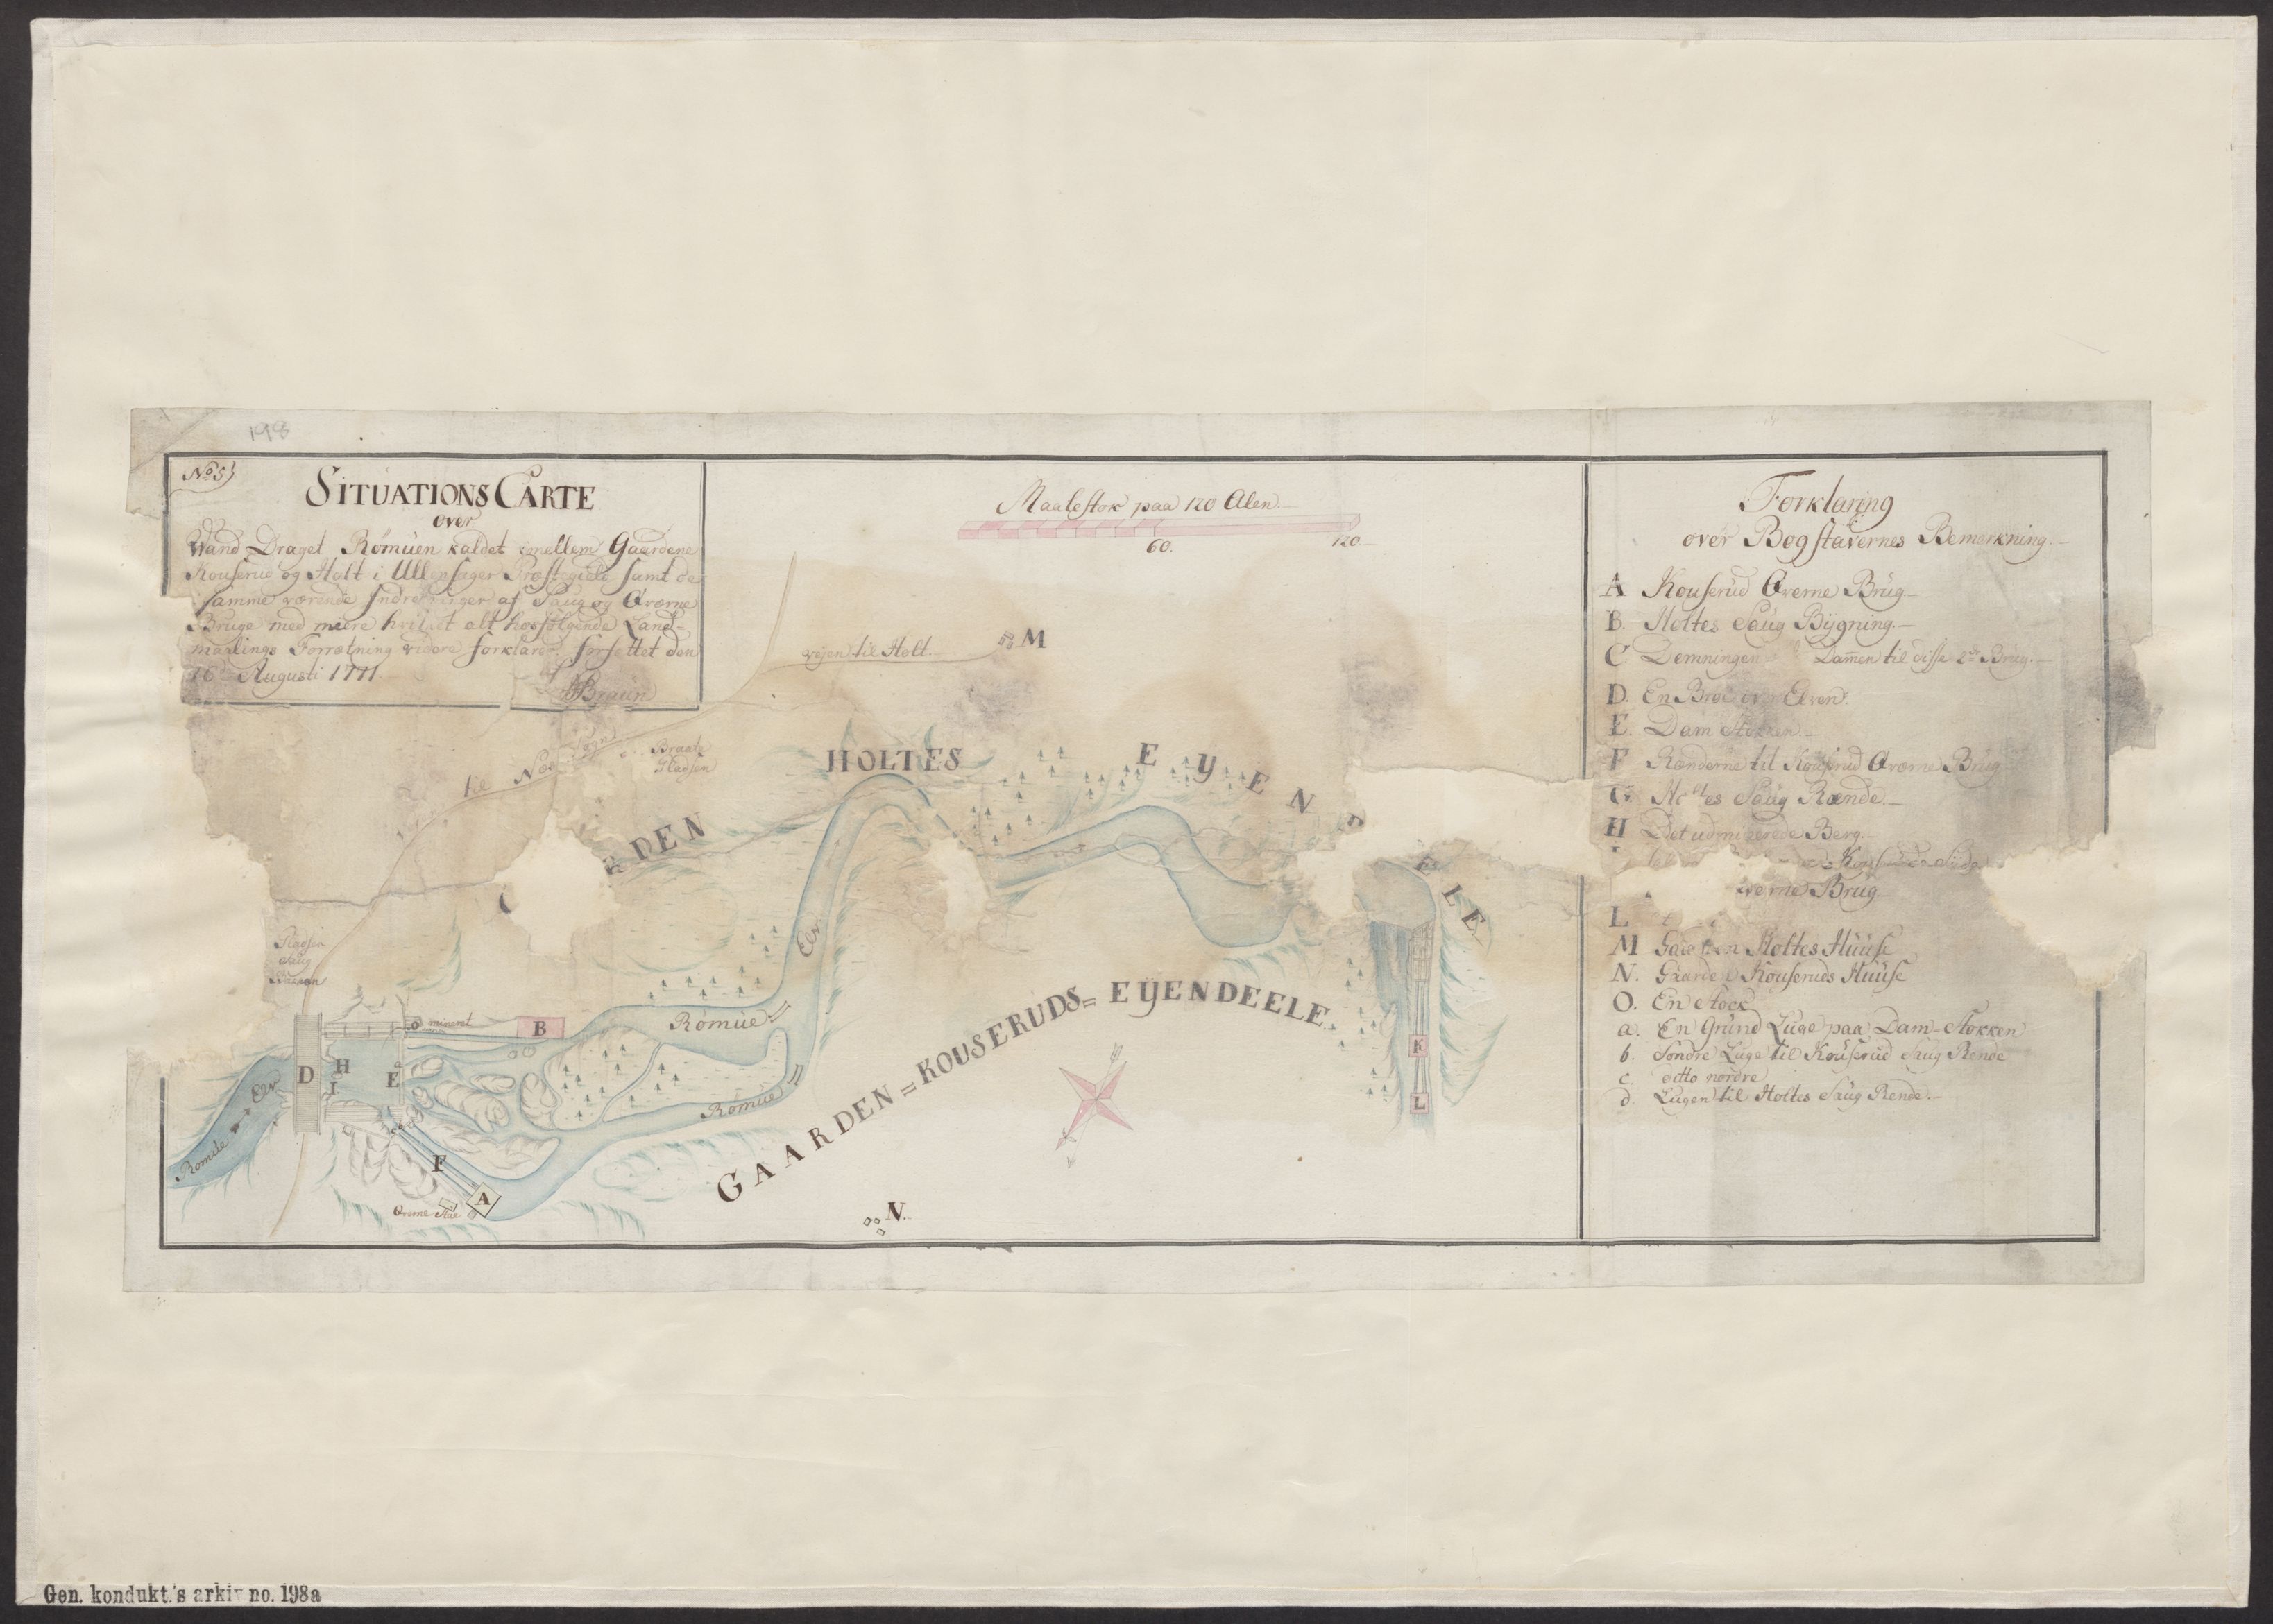 198
No 5
SITUATIONS CARTE
over
Wand Draget Römüen kaldet imellem Gaardene
Kouserud og Holt i Ullensager Præstegield samt de
samme værende Indretninger af Saug og Qværne
Bruge med meere hvilket alt hosfølgende Land-
maalings Forrætning videre forklarer, forfattet den
Augusti 1771
Braün
Maalestok paa 120 Alen.
60. 120
Forklaring
over Bogstavernes Bemerkning.
A Kouserüd Qverne Brüg
B. Holtes Saüg Bÿgning.
C Demningen Dam̅en til disse 2de Brüg.
D. En Broe over Elven.
E. Dam Stokken.
F Rænderne til Kouserud Qværne Brüg
G. Holtes Saüg Rænde.
H Det udminerede Berg.
verne Brüg
L
M Gaarden Holtes Hüüse
N. Gaarden Kouseruds Hüüse
O. En Stock
a. En Gründ Lüge paa Dam-Stokken
b. Søndre Lüge til Koüserüd Saug Rende
c. ditto nordre
d. Lügen til Holtes Saüg Rende.
vejen til Holt. M
Braate
Pladsen
HOLTES EYEN
DEN
ELE
Pladsen
Saug
Elv
mineret
O
B
Römüe
D H I E
Elv
Römüe
Romüe
F
A
Qverne Stue
GAARDEN = KOUSERUDS = EYENDEELE
N.
K
L
Gen. kondukt.'s arkiv no. 198a